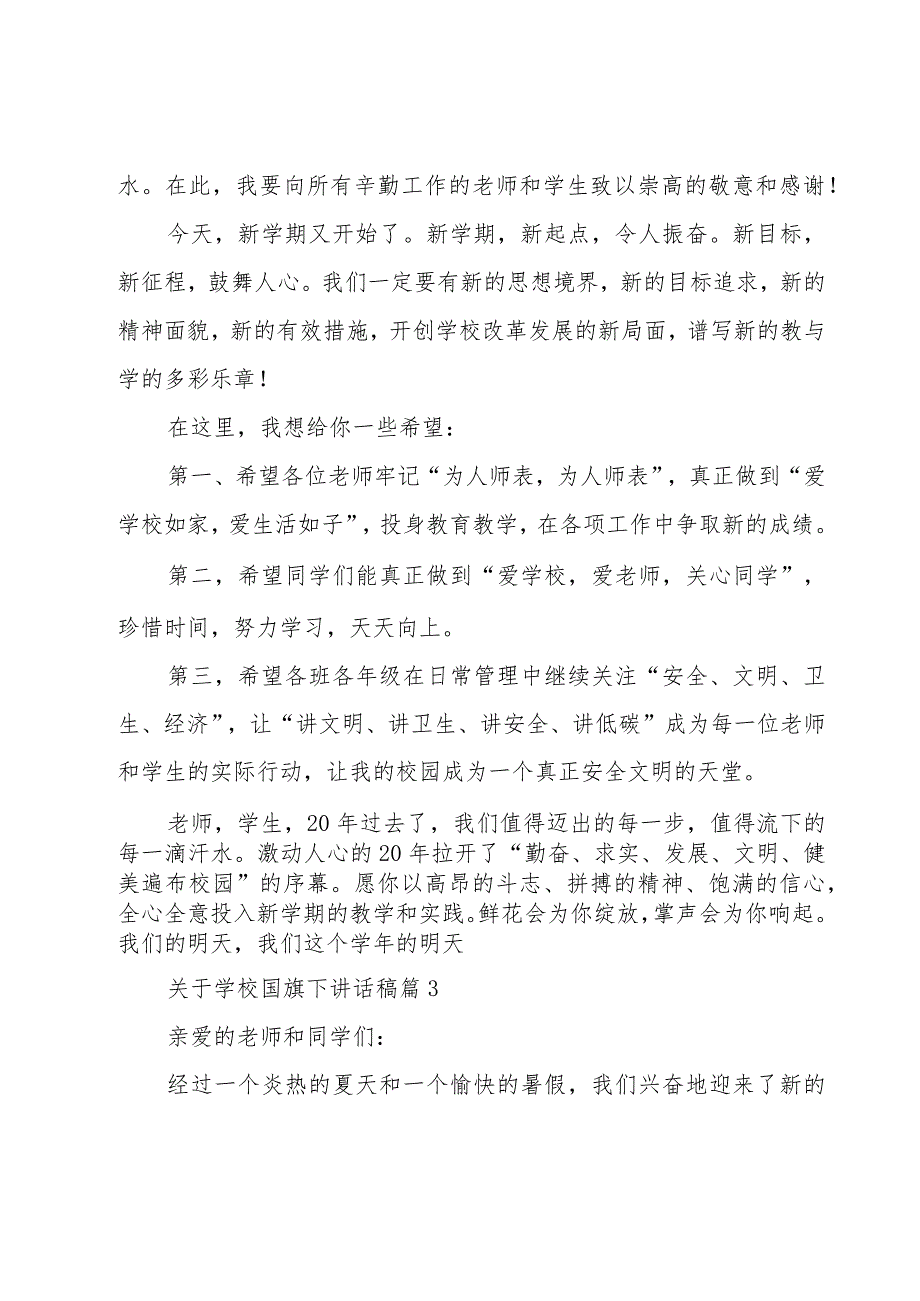 水。在此，我要向所有辛勤工作的老师和学生致以崇高的敬意和感谢！
今天，新学期又开始了。新学期，新起点，令人振奋。新目标，
新征程，鼓舞人心。我们一定要有新的思想境界，新的目标追求，新的
精神面貌，新的有效措施，开创学校改革发展的新局面，谱写新的教与
学的多彩乐章！
在这里，我想给你一些希望：
第一、希望各位老师牢记“为人师表，为人师表”，真正做到“爱
学校如家，爱生活如子”，投身教育教学，在各项工作中争取新的成绩。
第二，希望同学们能真正做到“爱学校，爱老师，关心同学”，
珍惜时间，努力学习，天天向上。
第三，希望各班各年级在日常管理中继续关注“安全、文明、卫
生、经济”，让“讲文明、讲卫生、讲安全、讲低碳”成为每一位老师
和学生的实际行动，让我的校园成为一个真正安全文明的天堂。
老师，学生，20 年过去了，我们值得迈出的每一步，值得流下的
每一滴汗水。激动人心的 20 年拉开了“勤奋、求实、发展、文明、健
美遍布校园”的序幕。愿你以高昂的斗志、拼搏的精神、饱满的信心，
全心全意投入新学期的教学和实践。鲜花会为你绽放，掌声会为你响起。
我们的明天，我们这个学年的明天
关于学校国旗下讲话稿篇 3
亲爱的老师和同学们：
经过一个炎热的夏天和一个愉快的暑假，我们兴奋地迎来了新的